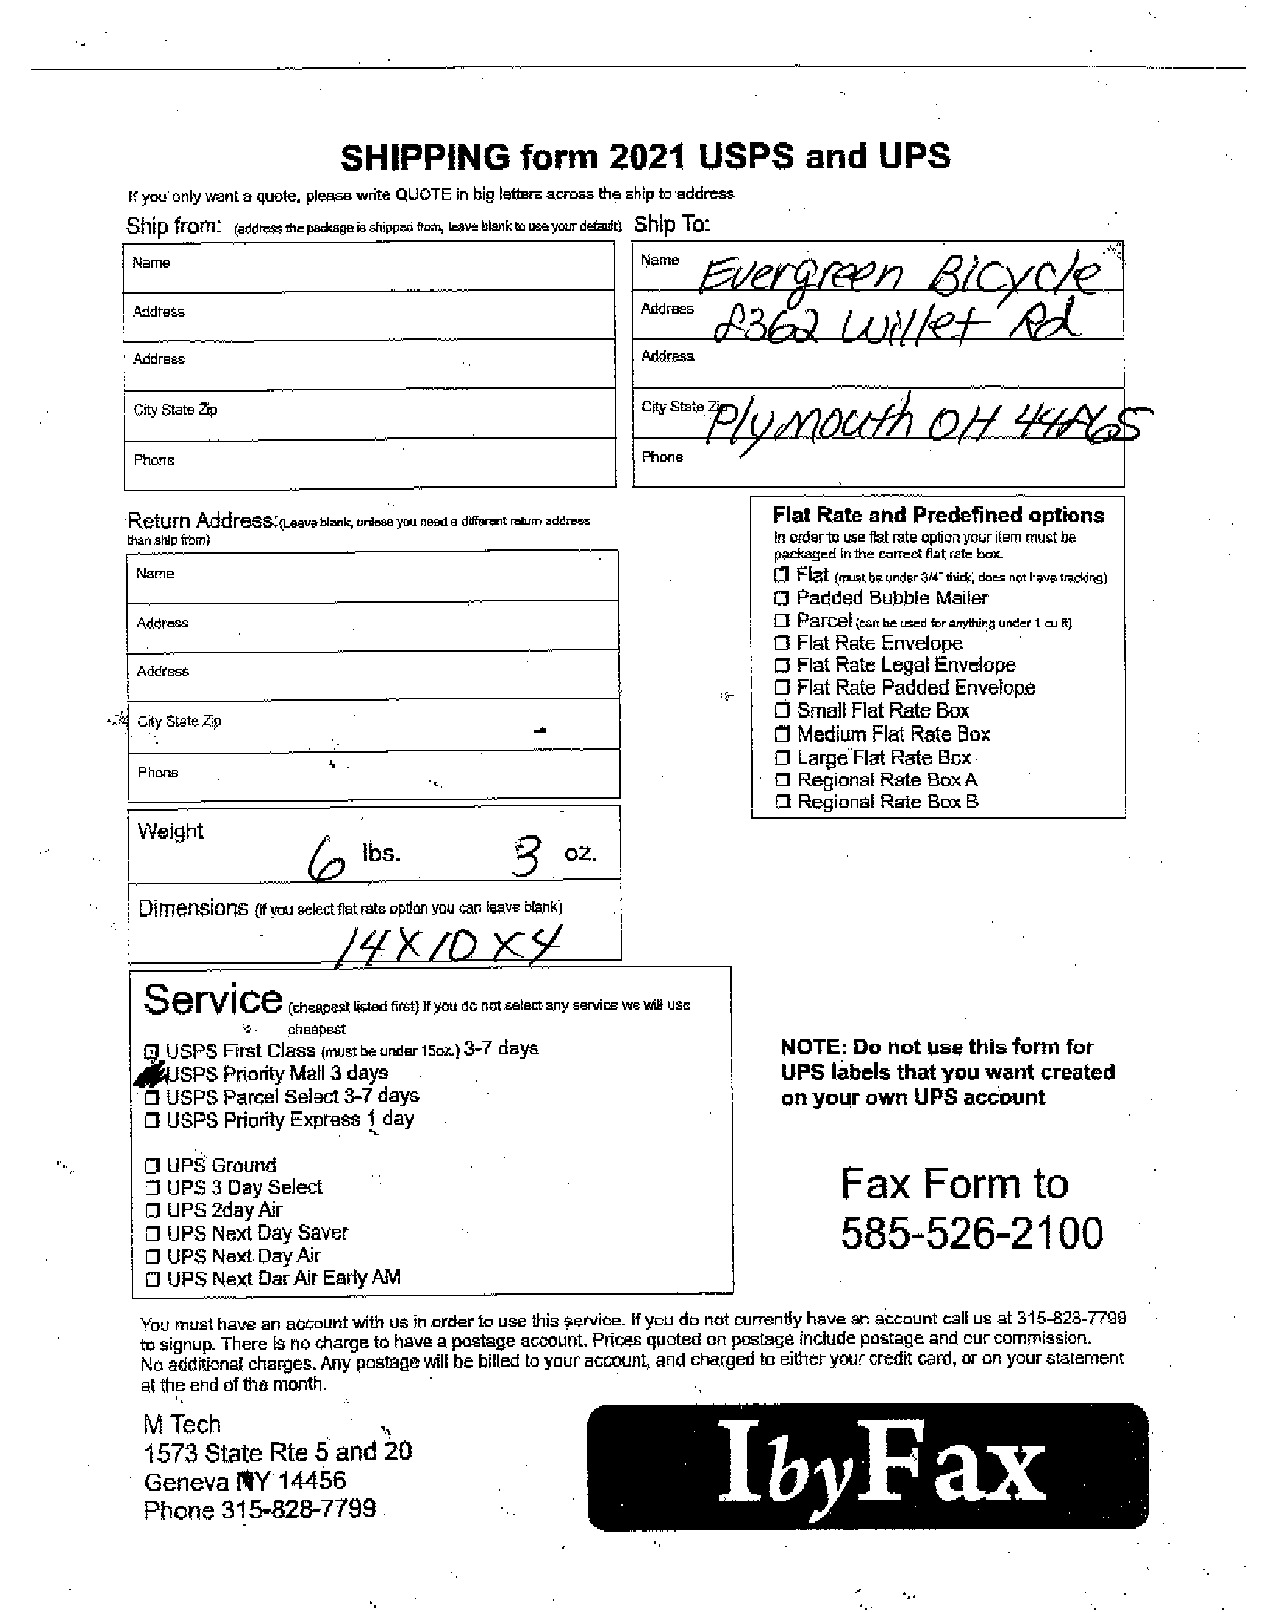 SHIPPING form 2021 USPS and UPS
If you only want a quote, please write QUOTE in big letters across the ship to address
Ship from: (address the package is shipped from, leave blank to use your default) Ship To:
Name
Name Evergreen Bicycle
Address
Address 2362 Willet Rd
Address
Address
City State Zip
City State Zip Plymouth OH 44865
Phone
Phone
Return Address:(Leave blank, unless you need a different return address
than ship from)
Name
Address
Address
City State Zip
Phone
Flat Rate and Predefined options
In order to use flat rate option your item must be
packaged in the correct flat rate box.
Flat (must be under 3/4" thick, does not have tracking)
Padded Bubble Mailer
Parcel (can be used for anything under 1 cu ft)
Flat Rate Envelope
Flat Rate Legal Envelope
Flat Rate Padded Envelope
Small Flat Rate Box
Medium Flat Rate Box
Large Flat Rate Box
Regional Rate Box A
Regional Rate Box B
Weight
6 lbs. 3 oz.
Dimensions (If you select flat rate option you can leave blank)
14 X 10 X 4
Service (cheapest listed first) If you do not select any service we will use
cheapest
USPS First Class (must be under 15oz.) 3-7 days
USPS Priority Mail 3 days
USPS Parcel Select 3-7 days
USPS Priority Express 1 day
UPS Ground
UPS 3 Day Select
UPS 2day Air
UPS Next Day Saver
UPS Next Day Air
UPS Next Dar Air Early AM
NOTE: Do not use this form for
UPS labels that you want created
on your own UPS account
Fax Form to
585-526-2100
You must have an account with us in order to use this service. If you do not currently have an account call us at 315-828-7799
to signup. There is no charge to have a postage account. Prices quoted on postage include postage and our commission.
No additional charges. Any postage will be billed to your account, and charged to either your credit card, or on your statement
at the end of the month.
M Tech
1573 State Rte 5 and 20
Geneva NY 14456
Phone 315-828-7799
IbyFax